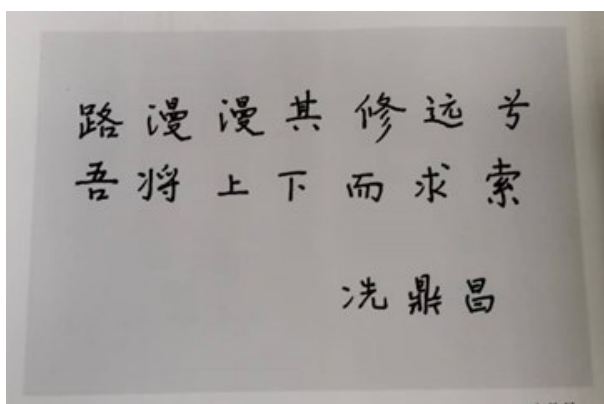 路漫漫其修远兮
吾将上下而求索
冼鼎昌